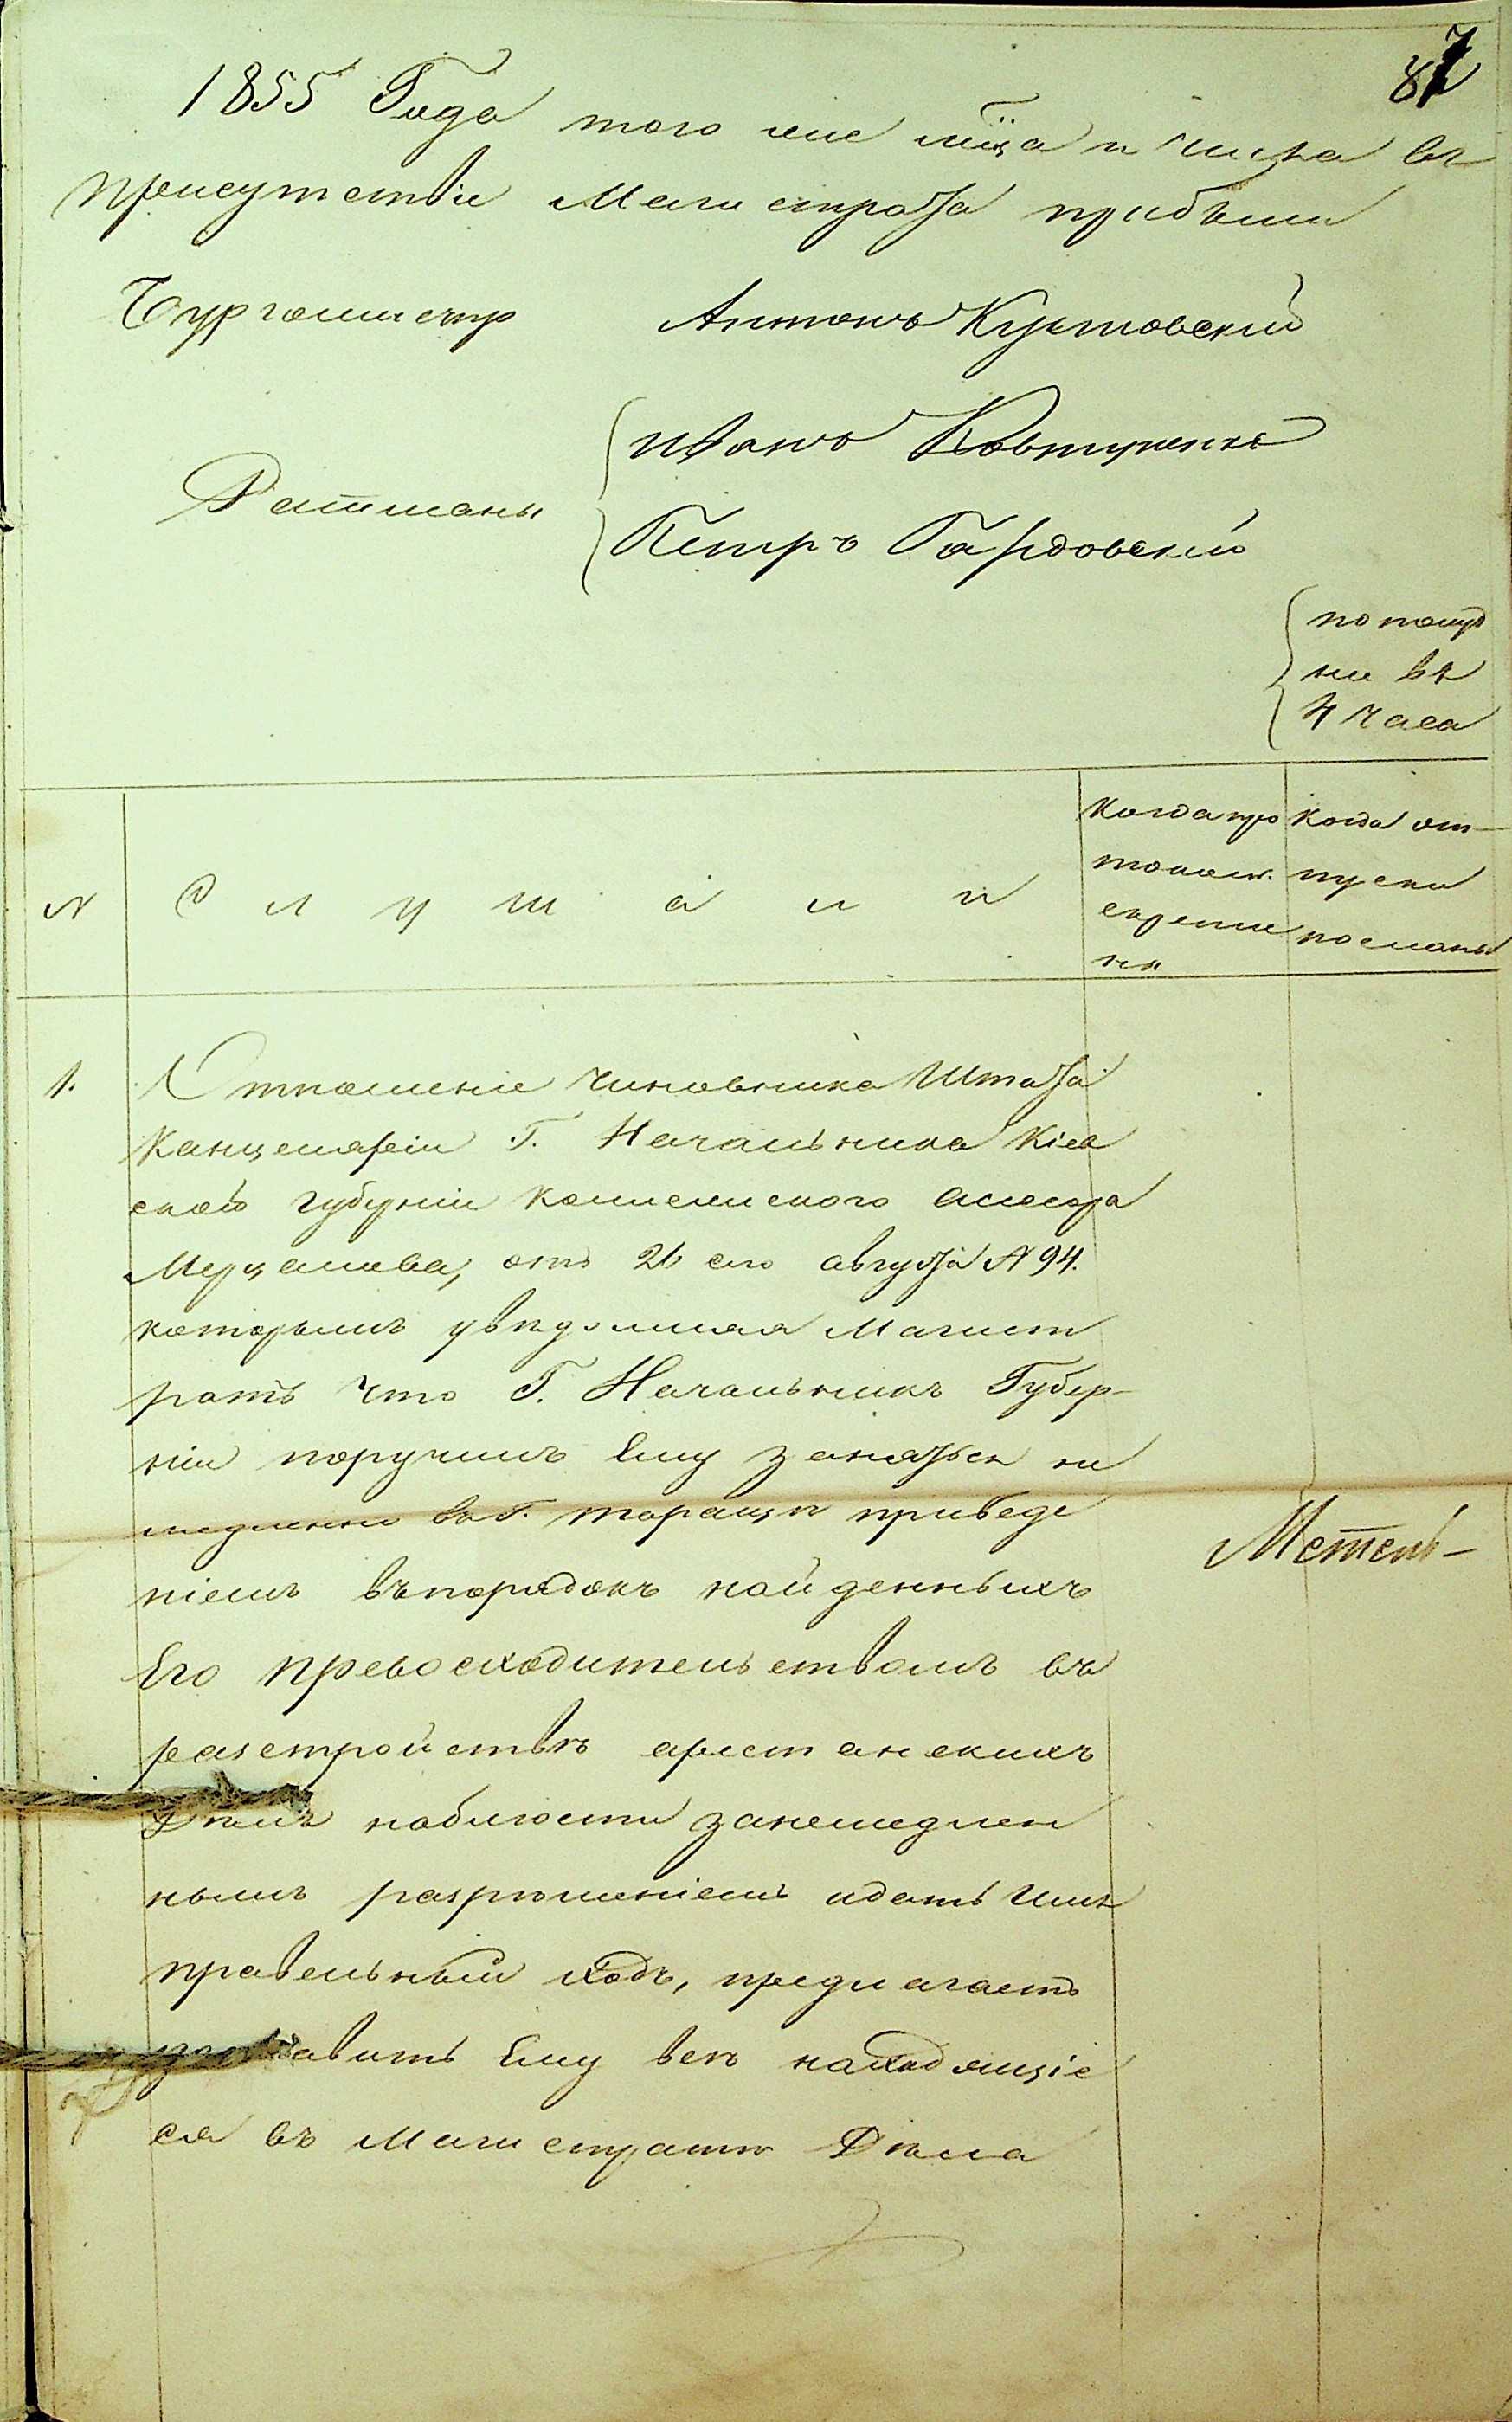 87
1855 Года того же мца и числа въ
присутствіи Магистрата прибыли
Бургомистр Антонъ Культовскій
Иванъ Ковтуненко
Ратманы
Петръ Гардовскій
по полуд
ни въ
4 часа
когда про когда от-
N Слушали токол. пуски
скрепле посланы
ны
1. Отношеніе чиновника Штата
Канцеляріи Г. Начальника Кіев
ской губерніи Коллежского Асесора
Мерцалова, отъ 21 сего августа N 94.
которымъ увѣдомляя Магист
ратъ что Г. Начальникъ Губер-
ніи поручилъ Ему заняться не
медленно въ г. Таращѣ приведе
ніемъ въ порядокъ найденныхъ
Его Превосходительствомъ въ
разстройствѣ арестанскихъ
Дѣлъ наблюсти за немедлен
нымъ разрѣшеніемъ и дать имъ
правельный ходъ, предлагаетъ
авить Ему всѣ находящіе
ся въ Магистратѣ Дѣла